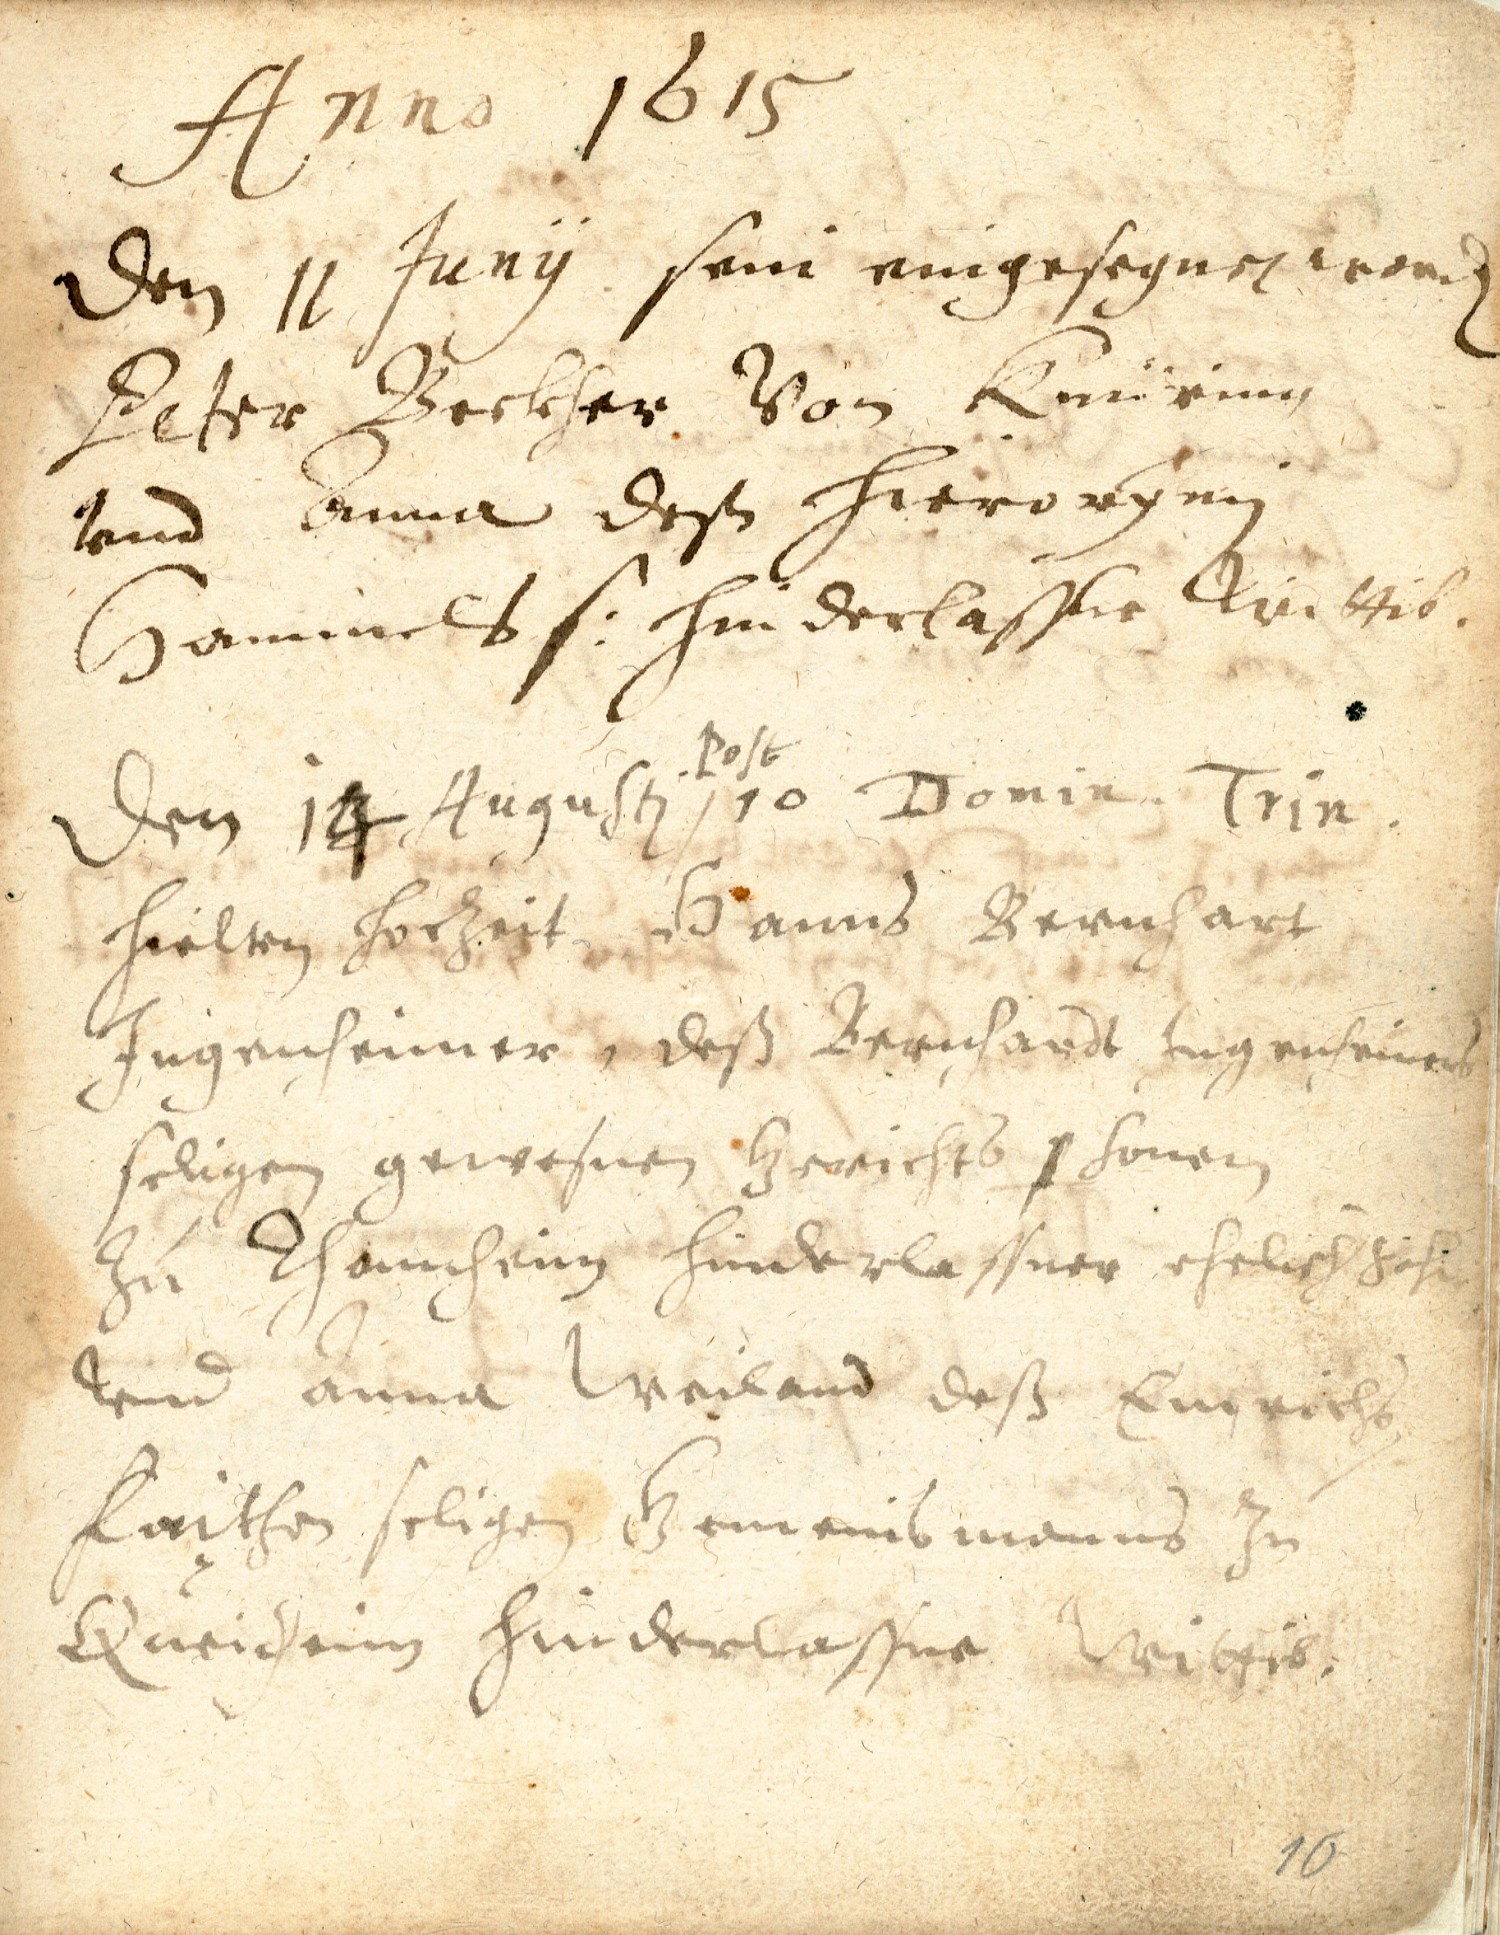 Anno 1615
Den 11 Junÿ sein eingesegnet word
Peter Beckher Von Knüring
vnd Anna deß Hieronÿmj
Hammels s: hinderlassne Wittib.
Post
Den 14 Augustj / 10 Domin. Trin.
hielten hochzeit Hanns Bernhart
Jngenheimer, deß Bernhardt Jngenheimers
seligen gewesnen Gerichts psonen
zu hinderlassner ehelich
vnd Anna Weiland deß Emrichs
seligen Gemeinsmanns zu
Queicheim hinderlassne Wittib.
10